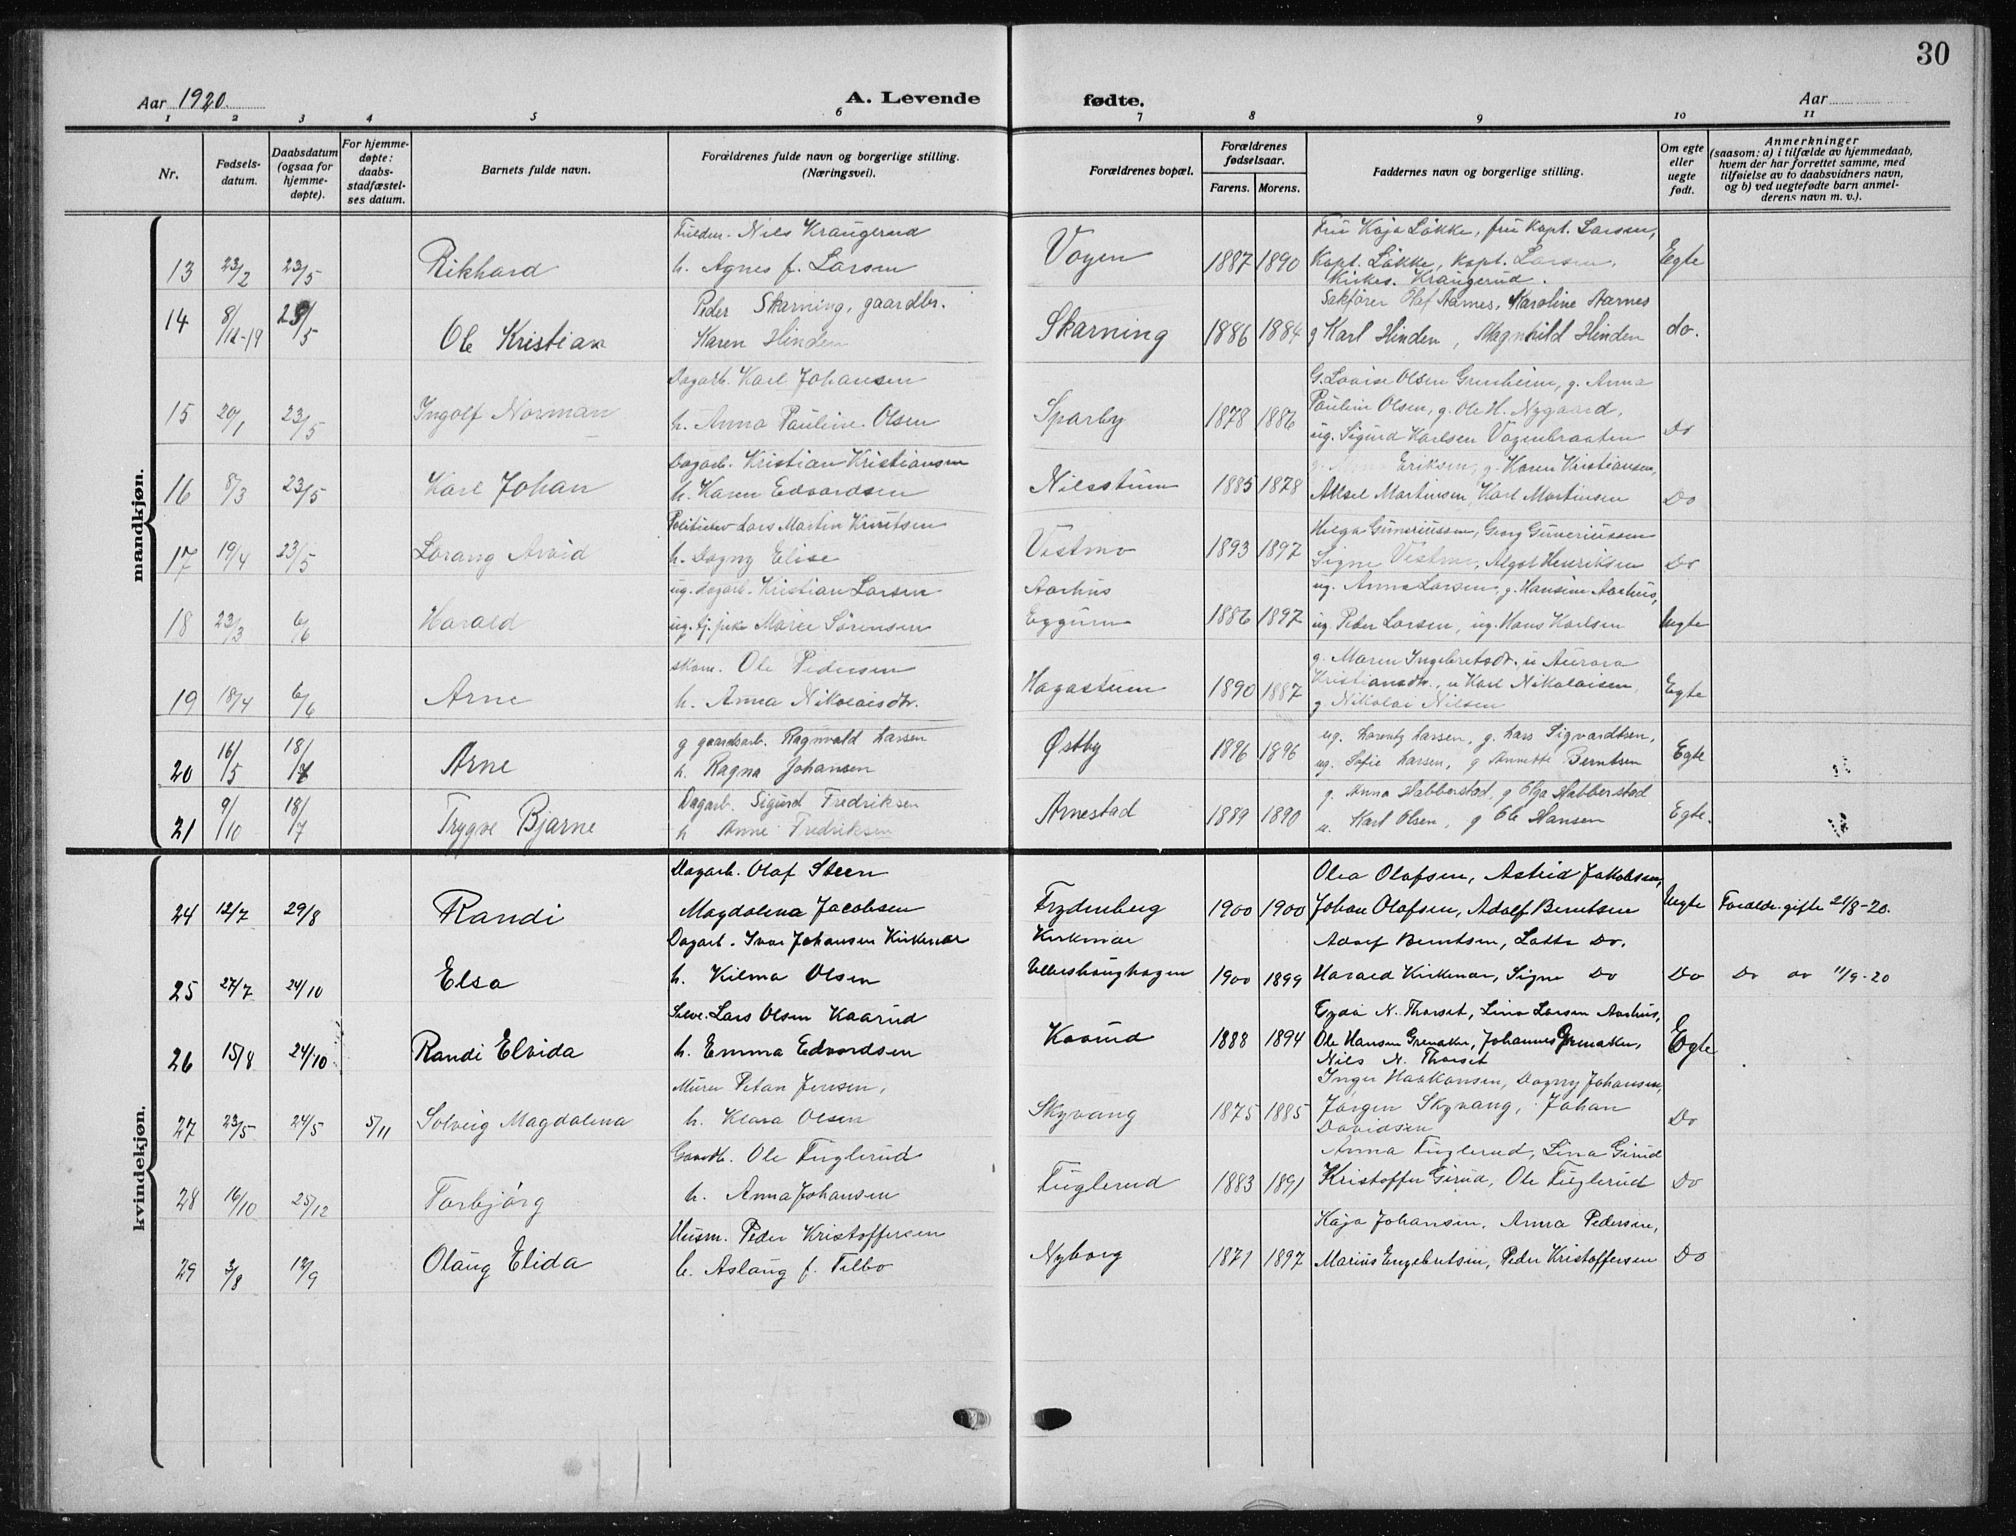 30
Aar 1920. A. Levende fødte. Aar
1 2 3 4 5 6 7 8 9 10 11
Nr. Fødsels-datum. Daabsdatum (ogsaa for hjemme-døpte). For hjemme-døpte: daabs-stadfæstel-ses datum. Barnets fulde navn. Forældrenes fulde navn og borgerlige stilling. (Næringsvei). Forældrenes bopæl. Forældrenes fødselsaar. Farens. Morens. Faddernes navn og borgerlige stilling. Om egte eller uegte født. Anmerkninger (saasom: a) i tilfælde av hjemmedaab, hvem der har forrettet samme, med tilføielse av to daabsvidners navn, og b) ved uegtefødte barn anmel-derens navn m. v.).
mandkjøn.
Nils Kraugerud Fru Kaja Løkke, fru kapt. Larsen,
13 23/2 23/5 Rikhard h. Agnes f. Larsen Vøyen 1887 1890 Kapt. Løkke, kapt. Larsen, Egte
Kirkes. Kraugerud.
Peder Skarning, gaardbr. Sakfører Olaf Aarnes, Karoline Aarnes
14 8/12-19 23/5 Ole Kristian Karen Hinden Skarning 1886 1884 g Karl Hinden, Magnhild Hinden do.
Dagarb. Karl Johansen G. Lovise Olsen Grenheim, g. Anna
15 20/1 23/5 Ingolf Norman h. Anna Pauline Olsen Sparby 1878 1886 Pauline Olsen, g. Ole H. Nygaard,
ug. Sigurd Karlsen Vøyenbraaten Do
Dagarb. Kristian Kristiansen g. Eriksen, g. Karen Kristiansen,
16 8/3 23/5 Karl Johan h. Karen Edvardsen Nilsstuen 1885 1878 Aksel Martinsen, Karl Martinsen Do
Lars Martin Knutsen Helga Guneriussen, Georg Guneriussen
17 19/4 23/5 Lorang Arvid h. Dagny Elise Vestmo 1893 1897 Signe Vestmo, Algot Henriksen Do
ug. dagarb. Kristian Larsen Aarhus ug. Anna Larsen, g. Hansine Aarhus,
18 23/3 6/6 Harald ug. tj. pike Marie Sørensen Eggum 1886 1897 ug. Peder Larsen, ug. Hans Karlsen Uegte
skom. Ole Pedersen g. Maren Ingebretsdtr. u Aurora
19 18/4 6/6 Arne h. Anna Nikolaisdtr. Hagastuen 1890 1887 Kristiansdtr., u Karl Nikolaisen, Egte
g Nikolai Nilsen
g gaardsarb. Ragnvald Larsen ug. Lorentz Larsen, g. Lars Sigvardtsen,
20 16/5 18/7 Arne h. Ragna Johansen Østby 1896 1896 ug. Sofie Larsen, g Annette Berntsen Egte
Dagarb. Sigurd Fredriksen g. Anna Habberstad, g Olga Habberstad
21 9/10 18/7 Trygve Bjarne h Anne Fredriksen Arnestad 1889 1890 u. Karl Olsen, g Ole Hansen Egte.
kvindekjøn.
Dagarb. Olaf Steen Olea Olafsen, Astrid Jakobsen,
24 12/7 29/8 Randi Magdalena Jacobsen Frydenberg 1900 1900 Johan Olafsen, Adolf Berntsen Uegte Foreldr. gifte 21/8-20.
Dagarb. Ivar Johansen Kirkenær Kirkenær Adolf Berntsen, Lotte Do.
25 27/7 24/10 Elsa h. Kilma Olsen 1900 1899 Harald Kirkenær, Signe Do Do Do do 11/9-20
Lars Olsen Kaarud N. Thorset, Lina Larsen Aarhus,
26 15/8 24/10 Randi Elvida h. Emma Edvardsen Kaarud 1888 1894 Ole Hansen Grenaker, Johannes Grenaker, Egte
Nils N. Thorset
Murer Petan Jensen, Inger Haakonsen, Dagny Johansen,
27 23/5 24/5 5/11 Solveig Magdalena h. Klara Olsen Skyvang 1875 1885 Jørgen Skyvang, Johan Do
Davidsen
Gaardb. Ole Fuglerud Anna Fuglerud, Lina Girud
28 16/10 25/12 Torbjørg h. Anna Johansen Fuglerud 1883 1891 Kristoffer Girud, Ole Fuglerud Do
Husm. Peder Kristoffersen Kaja Johansen, Anna Pedersen,
29 3/8 12/9 Olaug Elida h. Aslaug f. Tilbo Nyborg 1871 1897 Marius Engebretsen, Peder Kristoffersen Do